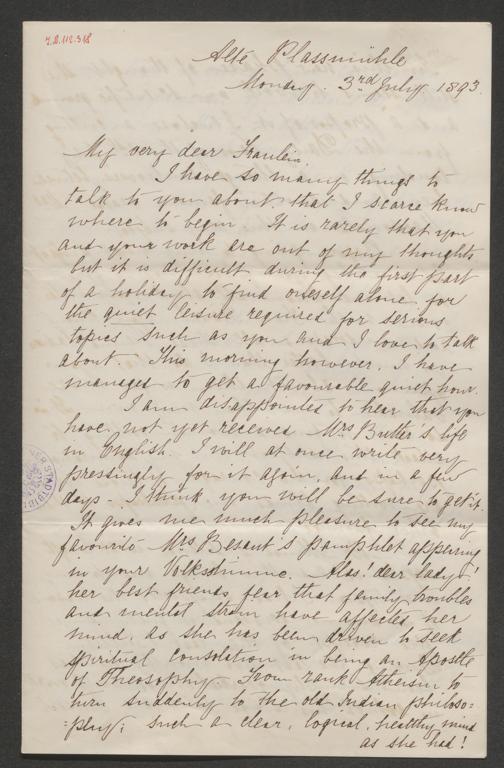 J.N. 112.318
Alte Plassmühle
Monday. 3rd July. 1893.
My very dear Fraulein.
I have so many things to
talk to you about, that I scarce know
where to begin. It is rarely that you
and your work are out of my thoughts
but it is difficult during the first part
of a holiday to find oneself alone for
the quiet leisure required for serious
topics such as you and I love to talk
about. This morning however, I have
managed to get a favourable quiet hour.
I am disappointed to hear that you
have not yet received Mrs Butler's life
in English. I will at once write very
pressingly for it again, and in a few
days - I think you will be sure to get it.
It gives me much pleasure to see my
favourite Mrs Besant's pamphlet appearing
in your Volksstimme. Alas! dear lady!
her best friends fear that family troubles
and mental strain have affected her
mind, as she has been driven to seek
spiritual consolation in being an Apostle
of Theosophy. From rank Atheism to
turn suddenly to the old Indian philoso=
=phy; such a clear, logical, healthy mind
as she had!